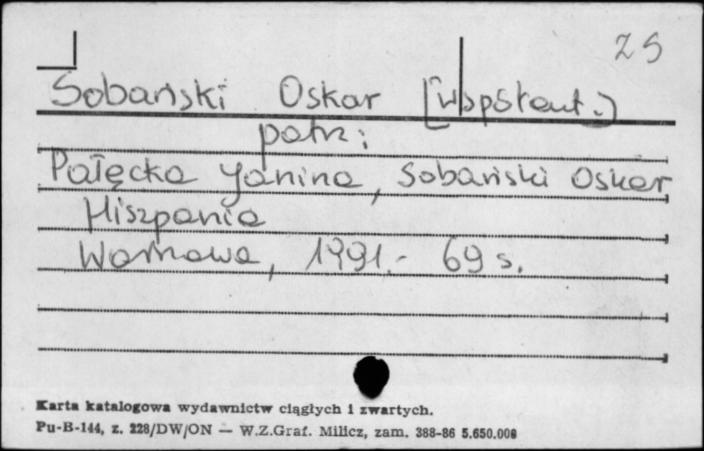 25
Sobański Oskar [współaut.]
patrz:
Pałęcka Janina, Sobański Oskar
Hiszpania
Warszawa, 1991.- 69 s.
Karta katalogowa wydawnictw ciągłych i zwartych.
Pu-B-144, z. 228/DW/ON — W.Z.Graf. Milicz, zam. 388-86 5.650.000